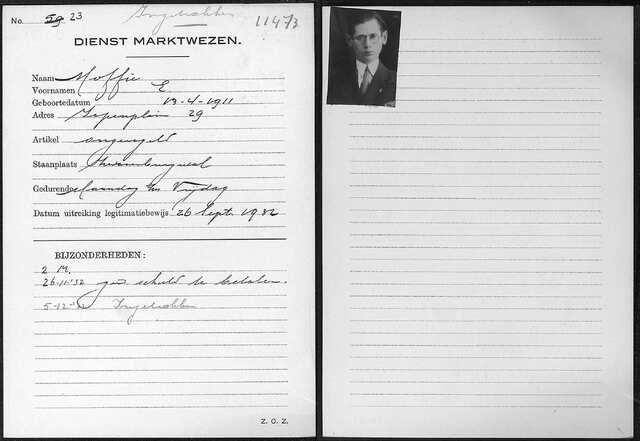 No. 59 23 Ingetrokken 11473
DIENST MARKTWEZEN.
Naam Moffie
Voornamen E.
Geboortedatum 19-4-1911
Adres Iepenplein 29
Artikel ongeregeld
Staanplaats Zwanenburgwal
Gedurende Maandag t/m Vrijdag
Datum uitreiking legitimatiebewijs 26 Sept. 1932
BIJZONDERHEDEN:
2 M.
26-11-'32 schuld te betalen.
5-12- Ingetrokken
Z. O. Z.